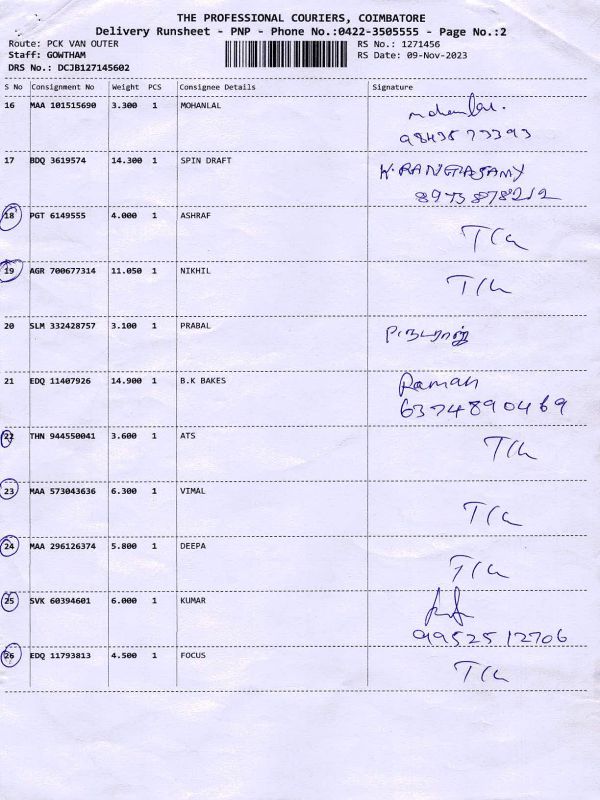 THE PROFESSIONAL COURIERS, COIMBATORE
Delivery Runsheet - PNP - Phone No.:0422-3505555 - Page No.:2
Route: PCK VAN OUTER RS No.: 1271456
Staff: GOWTHAM RS Date: 09-Nov-2023
DRS No.: DCJB127145602
S No Consignment No Weight PCS Consignee Details Signature
16 MAA 101515690 3.300 1 MOHANLAL mohanlal.
17 BDQ 3619574 14.300 1 SPIN DRAFT K.RANGASAMY
18 PGT 6149555 4.000 1 ASHRAF
19 AGR 700677314 11.050 1 NIKHIL
20 SLM 332428757 3.100 1 PRABAL
21 EDQ 11407926 14.900 1 B.K BAKES Raman
6374890469
22 THN 944550041 3.600 1 ATS
23 MAA 573043636 6.300 1 VIMAL
24 MAA 296126374 5.800 1 DEEPA
25 SVK 60394601 6.000 1 KUMAR
9952512706
26 EDQ 11793813 4.500 1 FOCUS